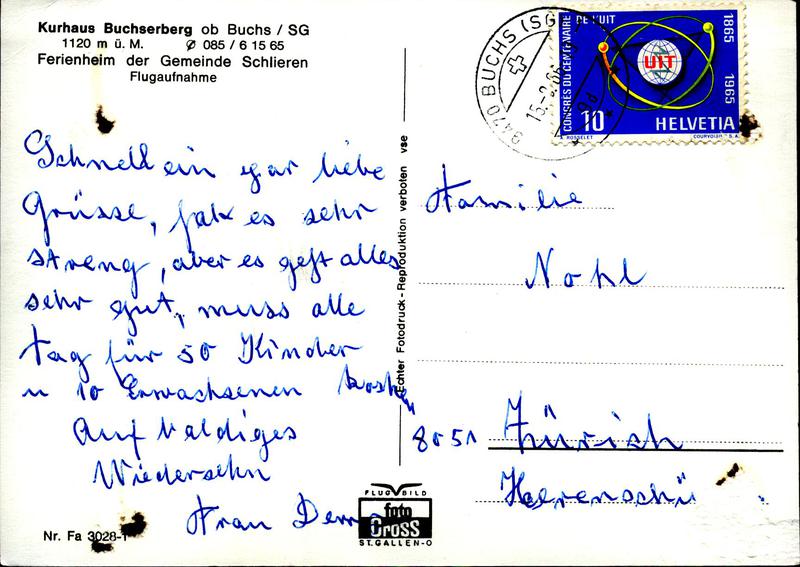 Kurhaus Buchserberg ob Buchs / SG
1120 m ü. M. Ø 085 / 6 15 65
Ferienheim der Gemeinde Schlieren
Flugaufnahme
9470 BUCHS (SG)
15.-9.65
CONGRÈS DU CENTENAIRE DE L'UIT
1865 1965
UIT
10 HELVETIA
A. ROSSELET COURVOISIER S.A.
Schnell ein gar liebe
Grüsse, hab es sehr
streng, aber es geht alles
sehr gut, muss alle
Tag für 50 Kinder
u 10 Erwachsenen kochen
Auf baldiges
Wiedersehn
Frau
Echter Fotodruck - Reproduktion verboten vse
Familie
Nohl
8051 Zürich
Nr. Fa 3028-1
FLUG BILD
foto
GROSS
ST. GALLEN-O